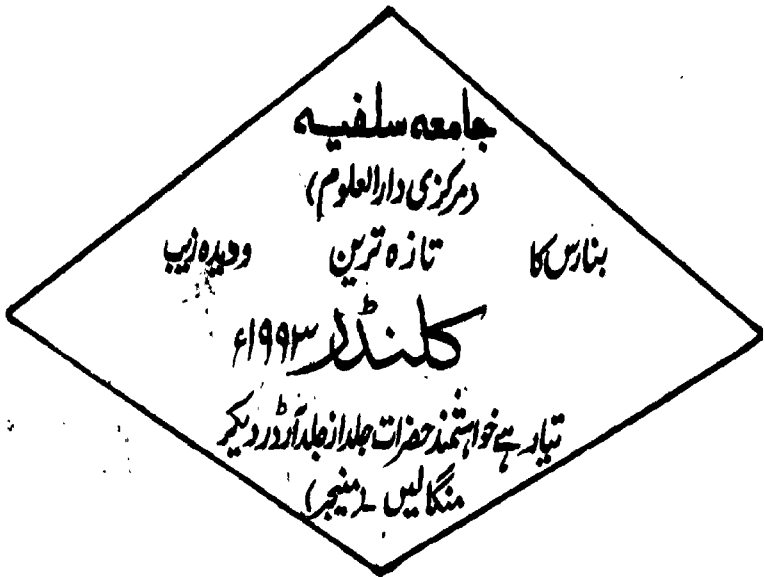 جامعہ سلفیہ
(مرکزی دارالعلوم)
بنارس کا تازہ ترین ودیدہ زیب
کلنڈر ۱۹۹۳ء
تیار ہے خواہشمند حضرات جلد از جلد آرڈر دیکر
منگا لیں ۔ (منیجر)